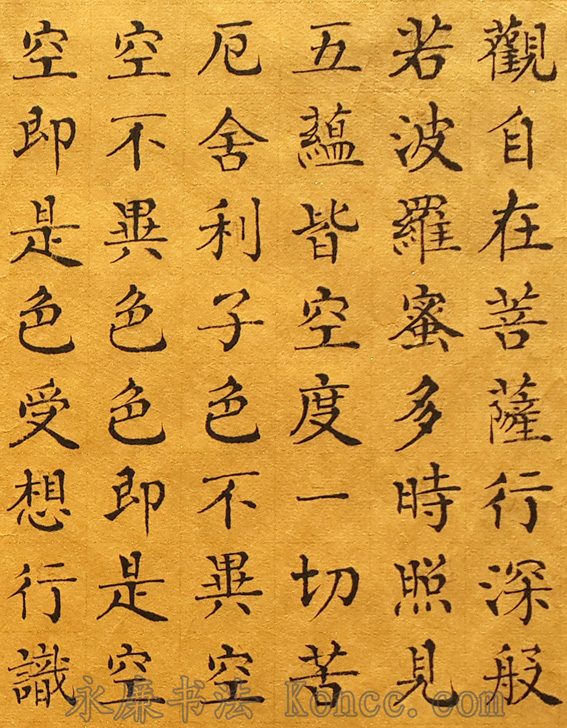 觀自在菩薩行深般
若波羅蜜多時照見
五蘊皆空度一切苦
厄舍利子色不異空
空不異色色即是空
空即是色受想行識
永廉书法 Koncc.com